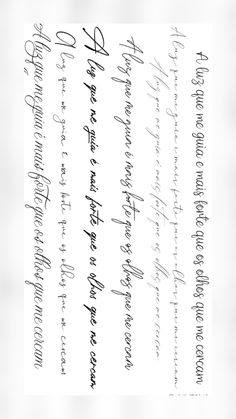 A luz que me guia é mais forte que os olhos que me cercam
A luz que me guia é mais forte que os olhos que me cercam
A luz que me guia é mais forte que os olhos que me cercam
A luz que me guia é mais forte que os olhos que me cercam
A luz que me guia é mais forte que os olhos que me cercam
A luz que me guia é mais forte que os olhos que me cercam
A luz que me guia é mais forte que os olhos que me cercam